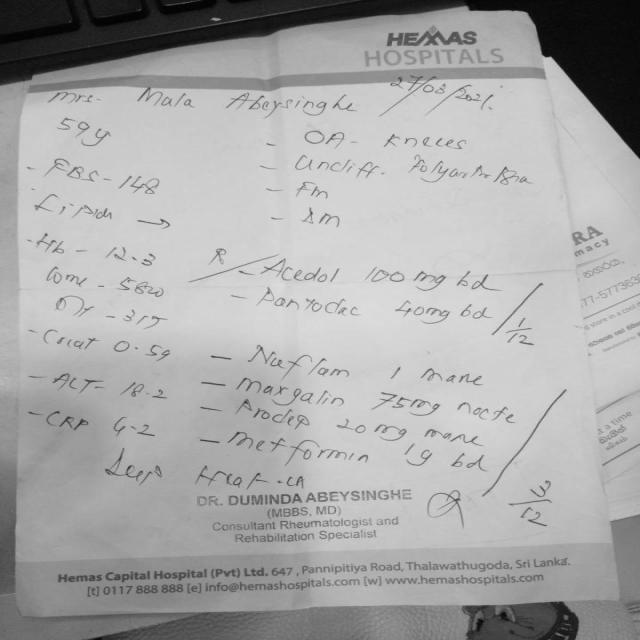 HEMAS
HOSPITALS
Mrs. Mala Abeysinghe 27/03/2021.
59y
- OA - Knees
- Uncliff. Polyarthr
- FM
- DM
- FBS - 148
- Lipids →
- Hb - 12.3
- 315
- Creat 0.59
- ALT - 18.2
- CRP 4.2
R/ - Acedol 100 mg bd
- Pantodac 40mg bd
1/12
- Nuflam 1 mane
- Margalin 75mg nocte
- Prodep 20 mg mane
- Metformin 1g bd
3/12
DR. DUMINDA ABEYSINGHE
(MBBS, MD)
Consultant Rheumatologist and
Rehabilitation Specialist
Hemas Capital Hospital (Pvt) Ltd. 647 , Pannipitiya Road, Thalawathugoda, Sri Lanka.
[t] 0117 888 888 [e] info@hemashospitals.com [w] www.hemashospitals.com
RA
macy